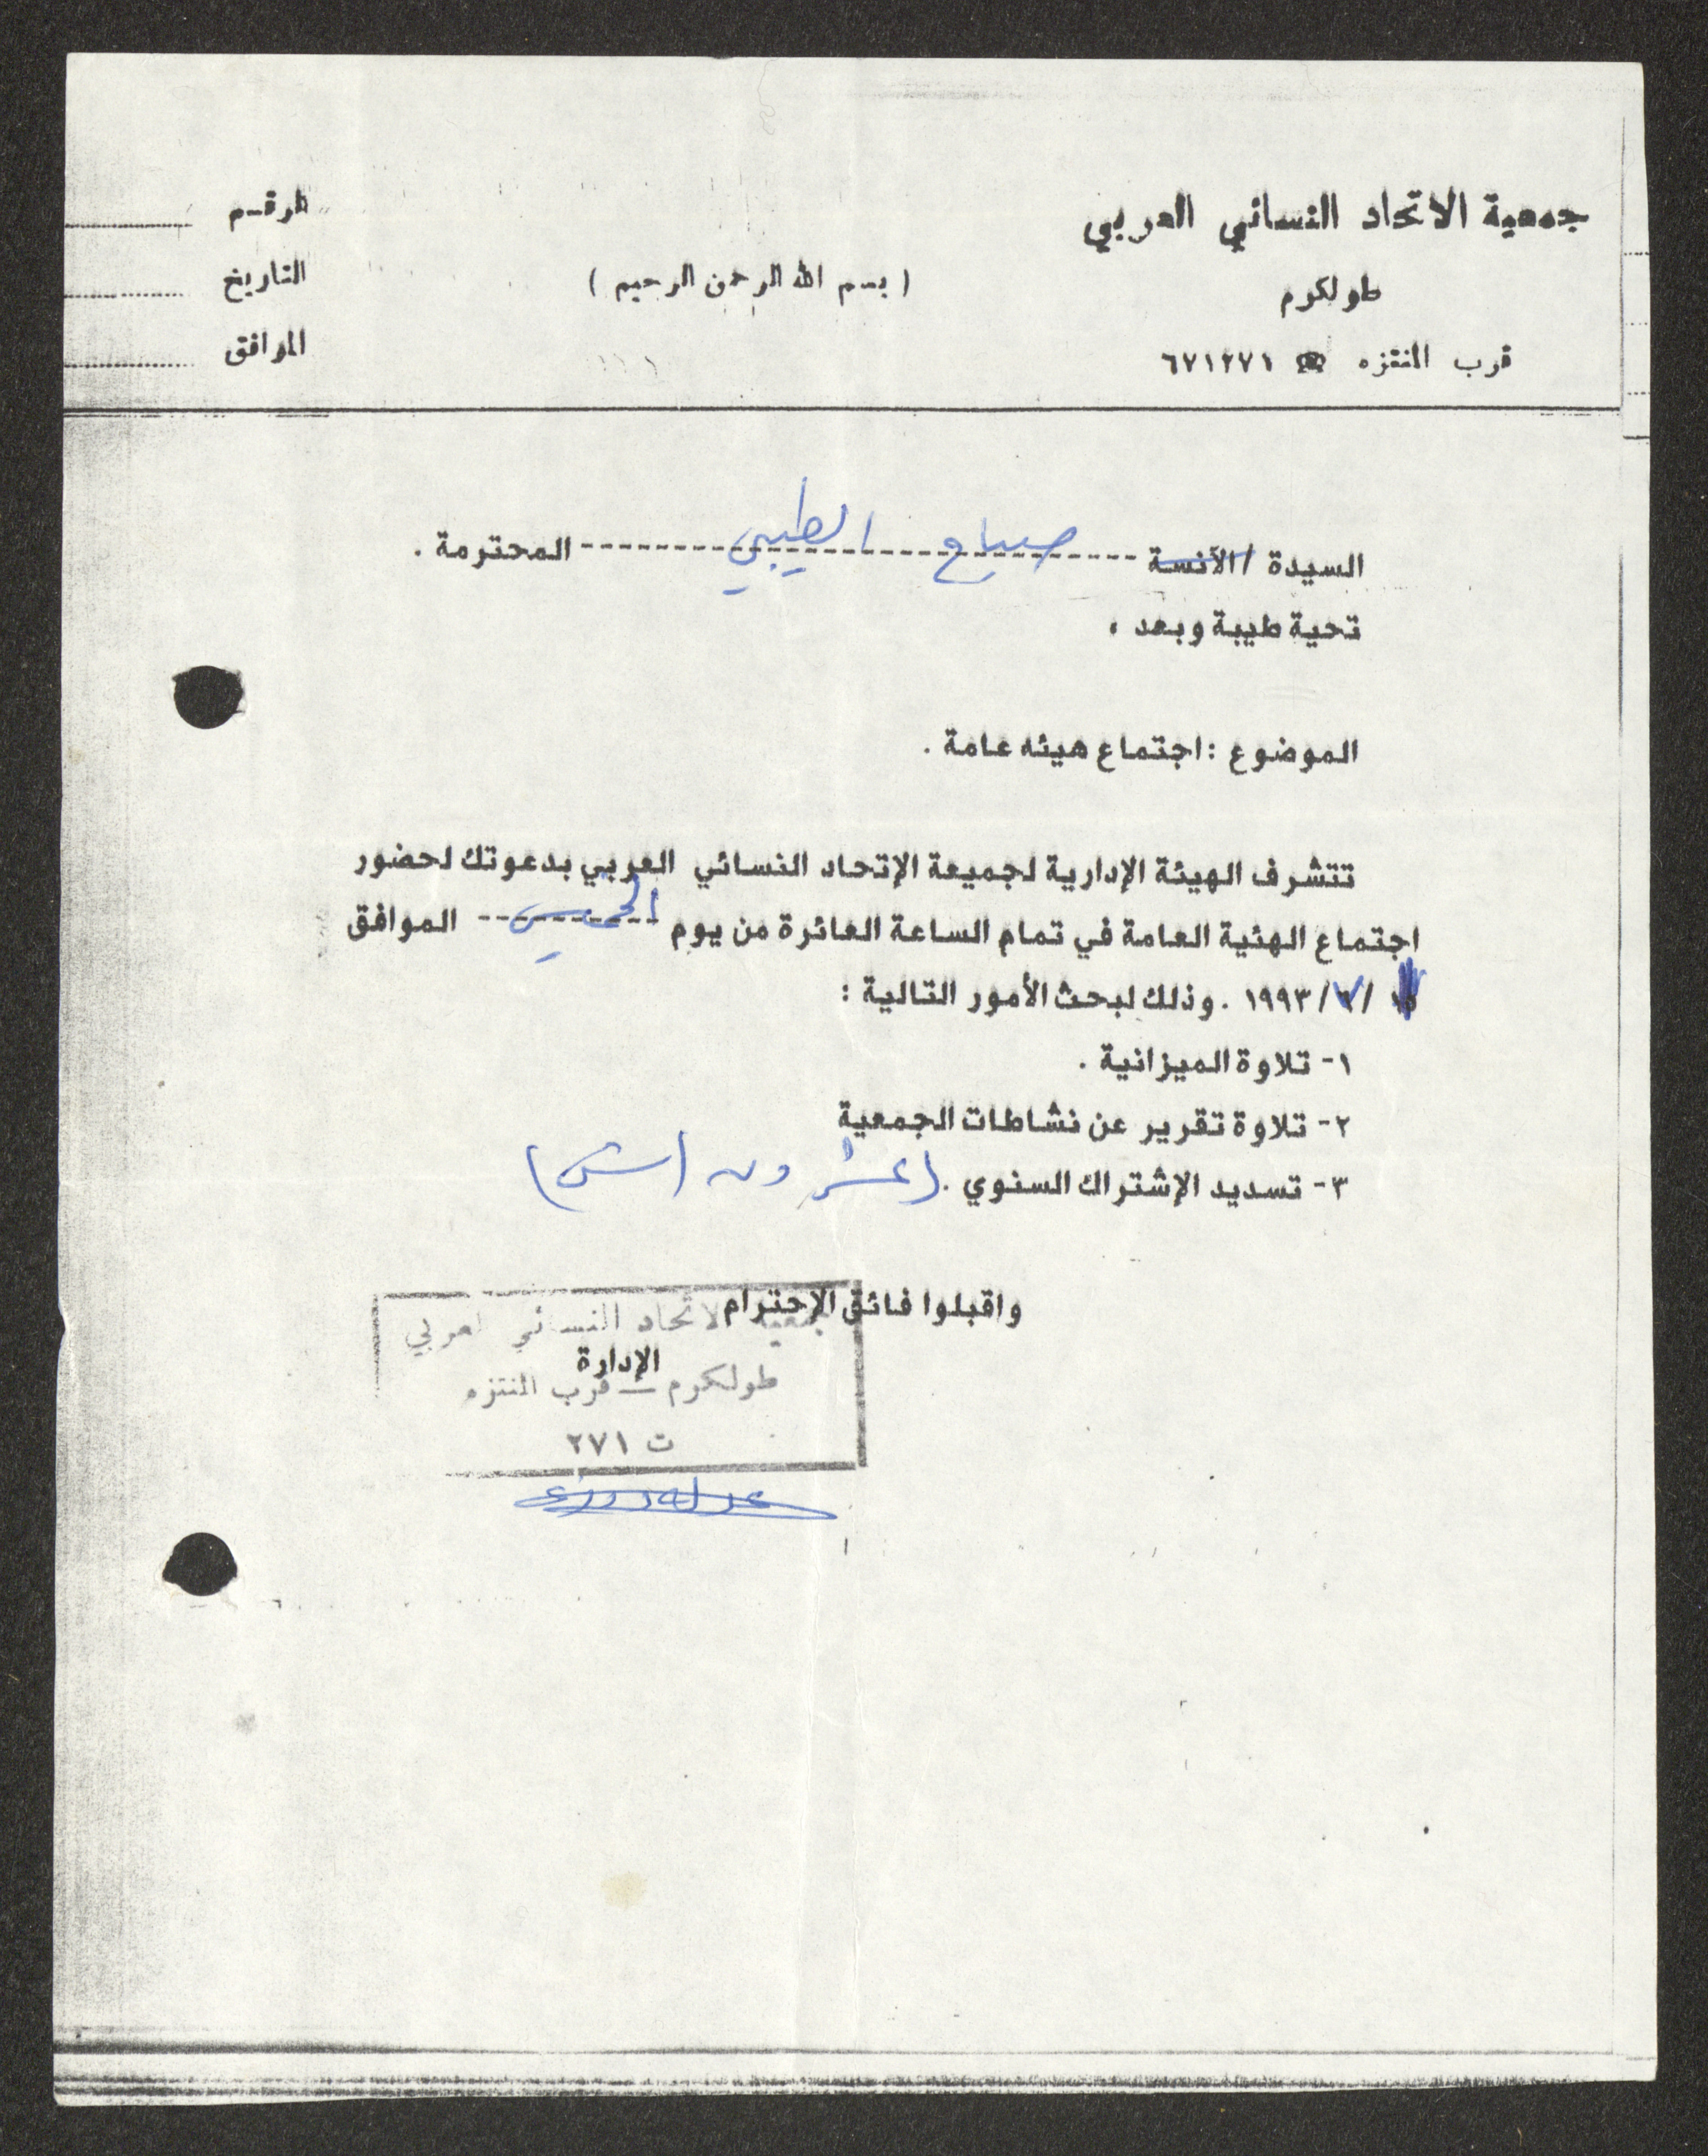 جمعية الاتحاد النسائي العربي
طولكرم
قرب المنتزه ☎ ٦٧١٢٧١
( بسم الله الرحمن الرحيم )
الرقم
التاريخ
الموافق
السيدة / الآنسة صباح الطيبي المحترمة .
تحية طيبة وبعد ،
الموضوع : اجتماع هيئه عامة .
تتشرف الهيئة الإدارية لجميعة الإتحاد النسائي العربي بدعوتك لحضور
اجتماع الهئية العامة في تمام الساعة العائرة من يوم الخميس الموافق
/٧/ ١٩٩٣ . وذلك لبحث الأمور التالية :
١- تلاوة الميزانية .
٢- تلاوة تقرير عن نشاطات الجمعية
٣- تسديد الإشتراك السنوي . (عشرون )
واقبلوا فائق الإحترام
الإدارة
جمعية الاتحاد النسائي العربي
طولكرم — قرب المنتزه
ت ٢٧١